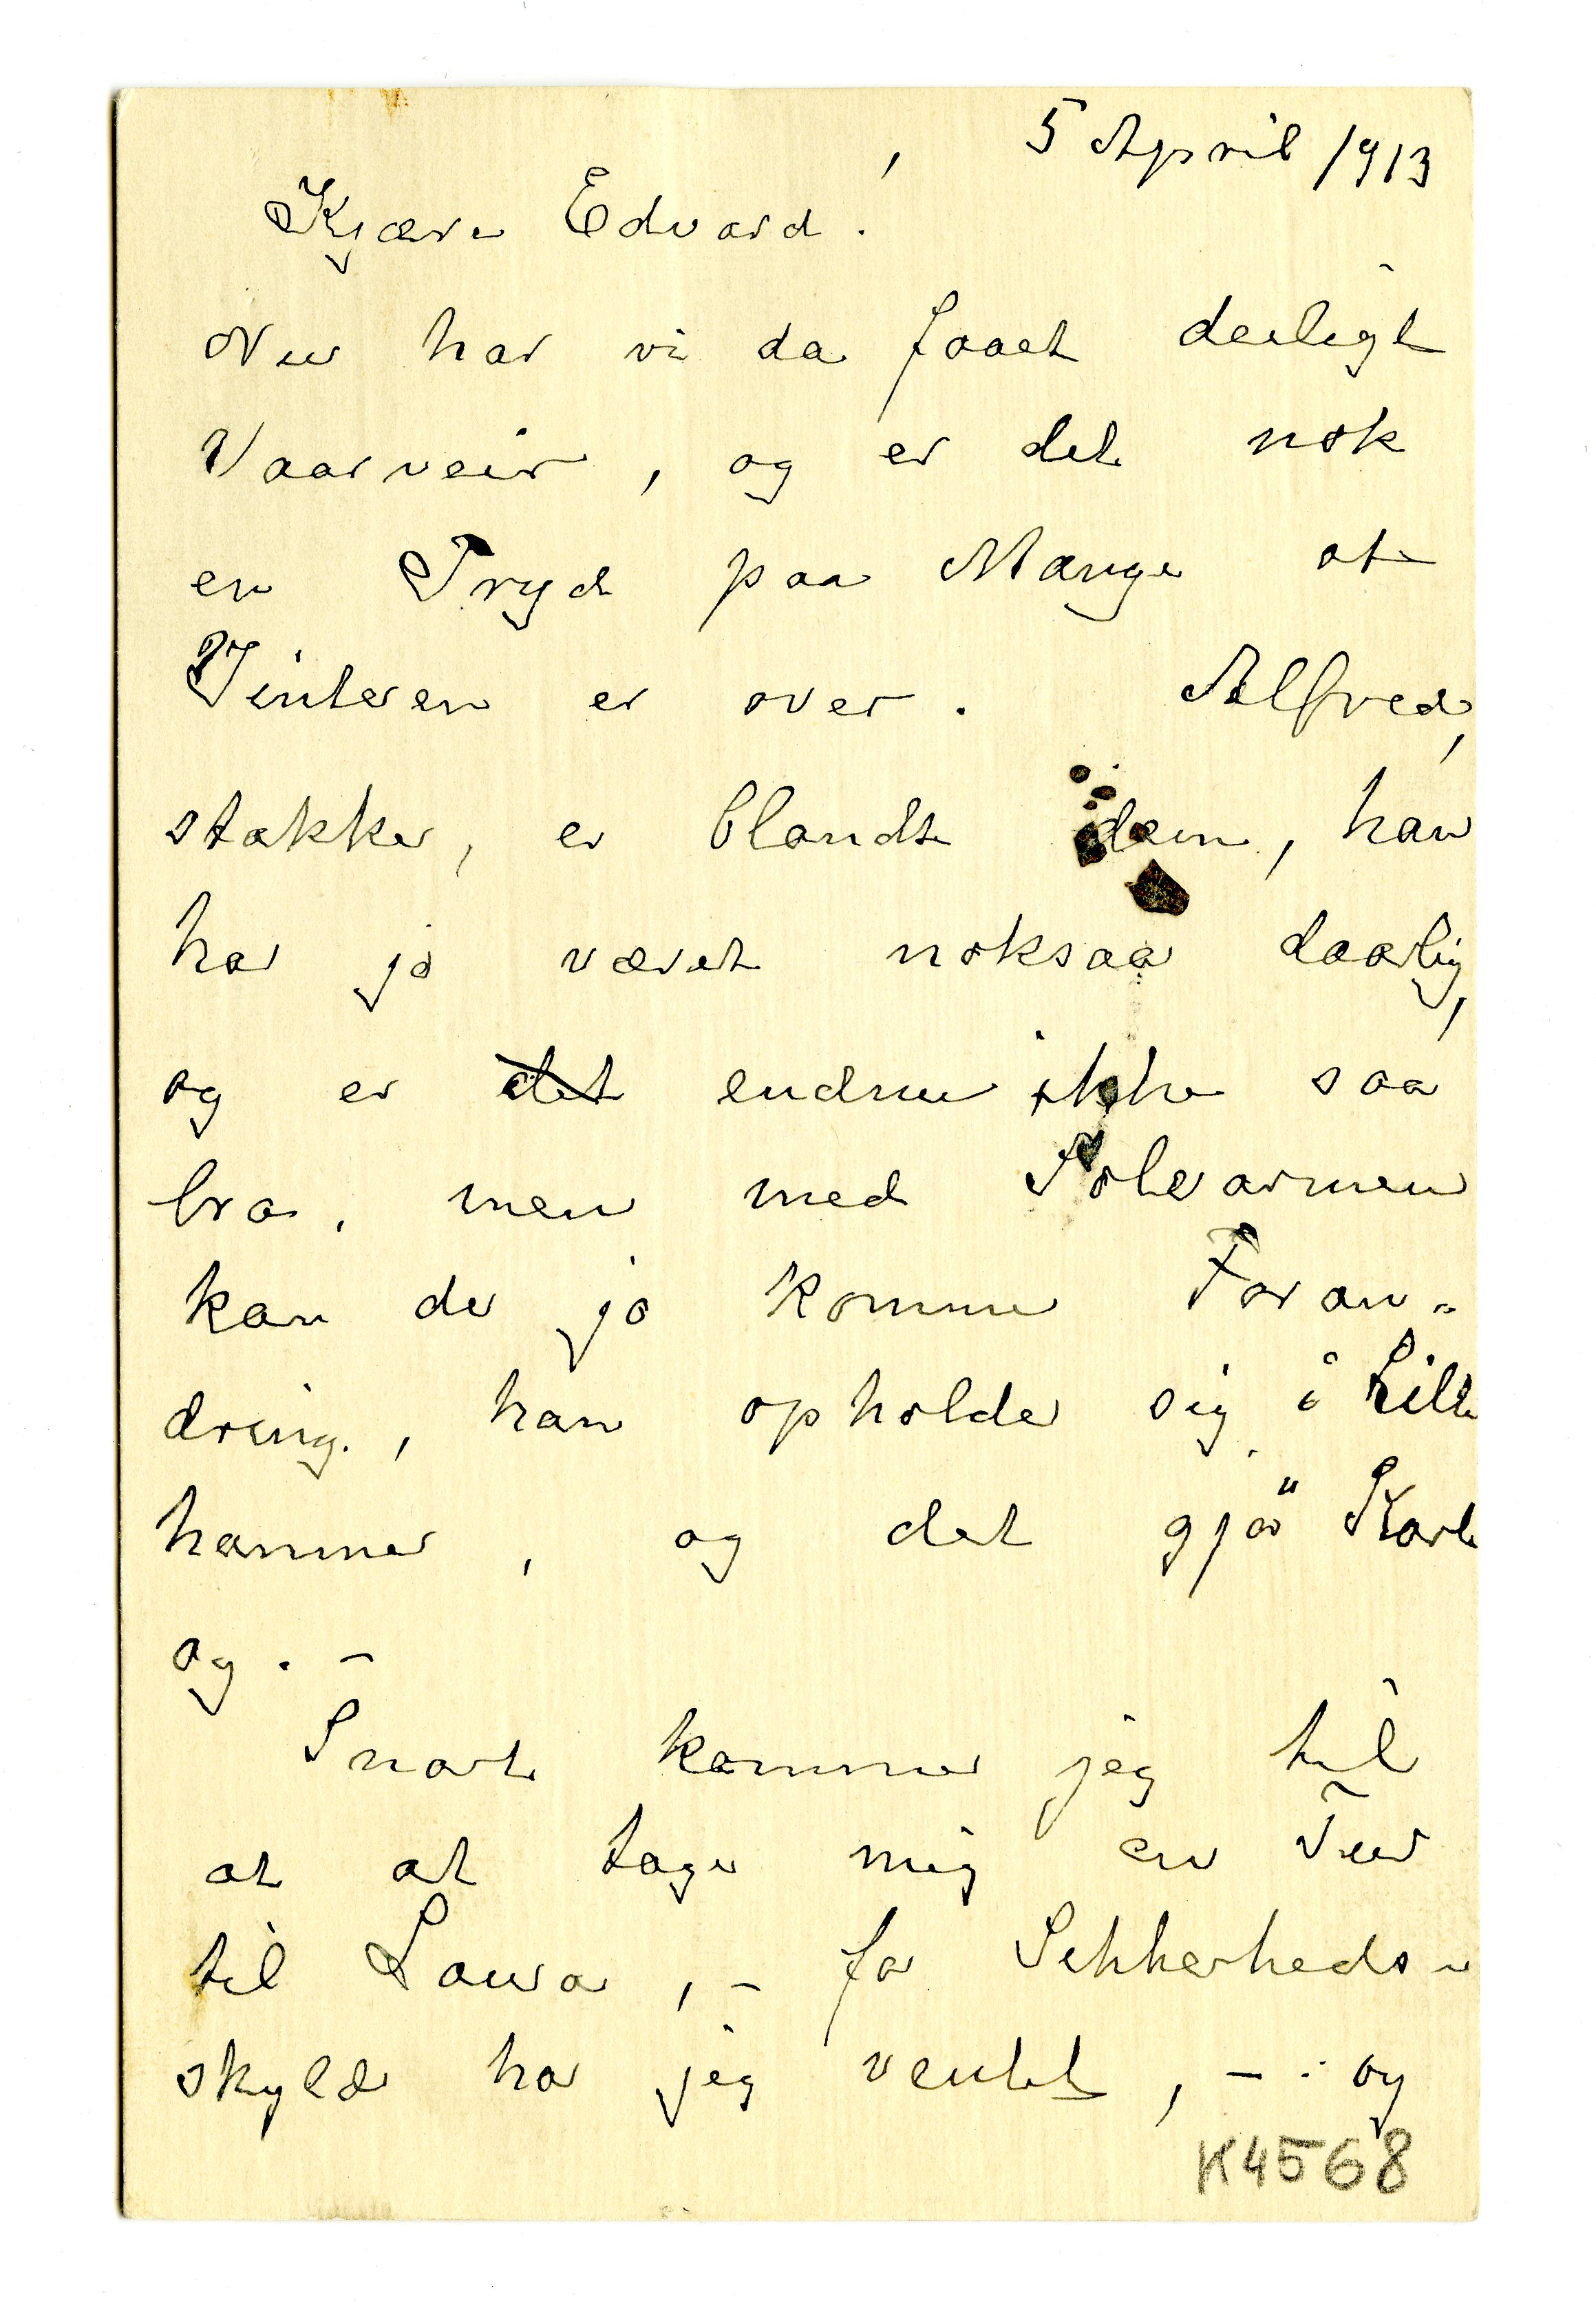 5 April 1913
Kjære Edvard.
Nu har vi da faaet deiligt
Vaarveir, og er det nok
en Fryd paa Mange at
Vinteren er over. Alfred,
stakker, er blandt dem, han
har jo været noksaa daarlig,
og er det endnu ikke saa
bra, men med Solvarmen
kan der jo komme Foran-
dring, han opholder sig i Lille
hammer, og det gjør Karl
og. -
Snart kommer jeg til
at at tage mig en Tur
til Laura, - for Sikkerheds-
skyld har jeg ventet, - og
K4568